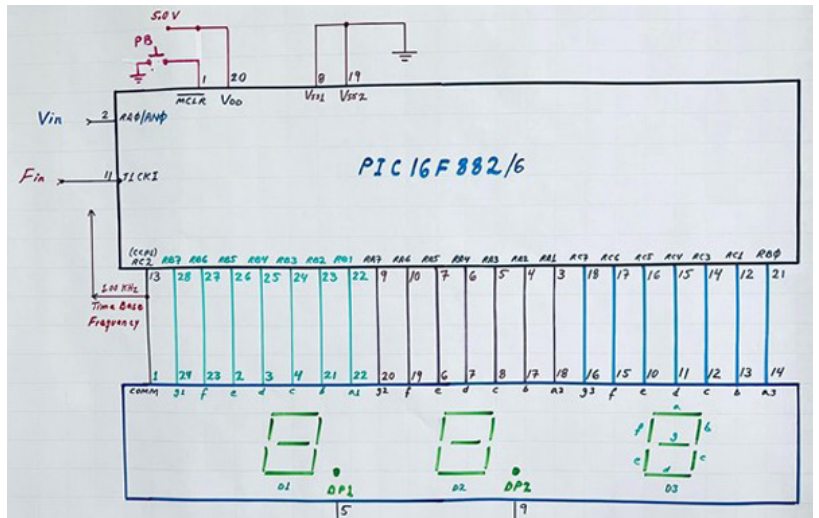 5.0 V
PB
1 20 8 19
MCLR VDD VSS1 VSS2
Vin 2 RA0/AN0
PIC16F882/6
Fin 11 T1CKI
(CCP1)
RC2 RB7 RB6 RB5 RB4 RB3 RB2 RB1 RA7 RA6 RA5 RA4 RA3 RA2 RA1 RC7 RC6 RC5 RC4 RC3 RC1 RB0
13 28 27 26 25 24 23 22 9 10 7 6 5 4 3 18 17 16 15 14 12 21
100 KHz
Time Base
Frequency
1 24 23 2 3 4 21 22 20 19 6 7 8 17 18 16 15 10 11 12 13 14
COMM g1 f e d c b a1 g2 f e d c b a2 g3 f e d c b a3
a
f b
g
e c
d
D1 DP1 D2 DP2 D3
5 9